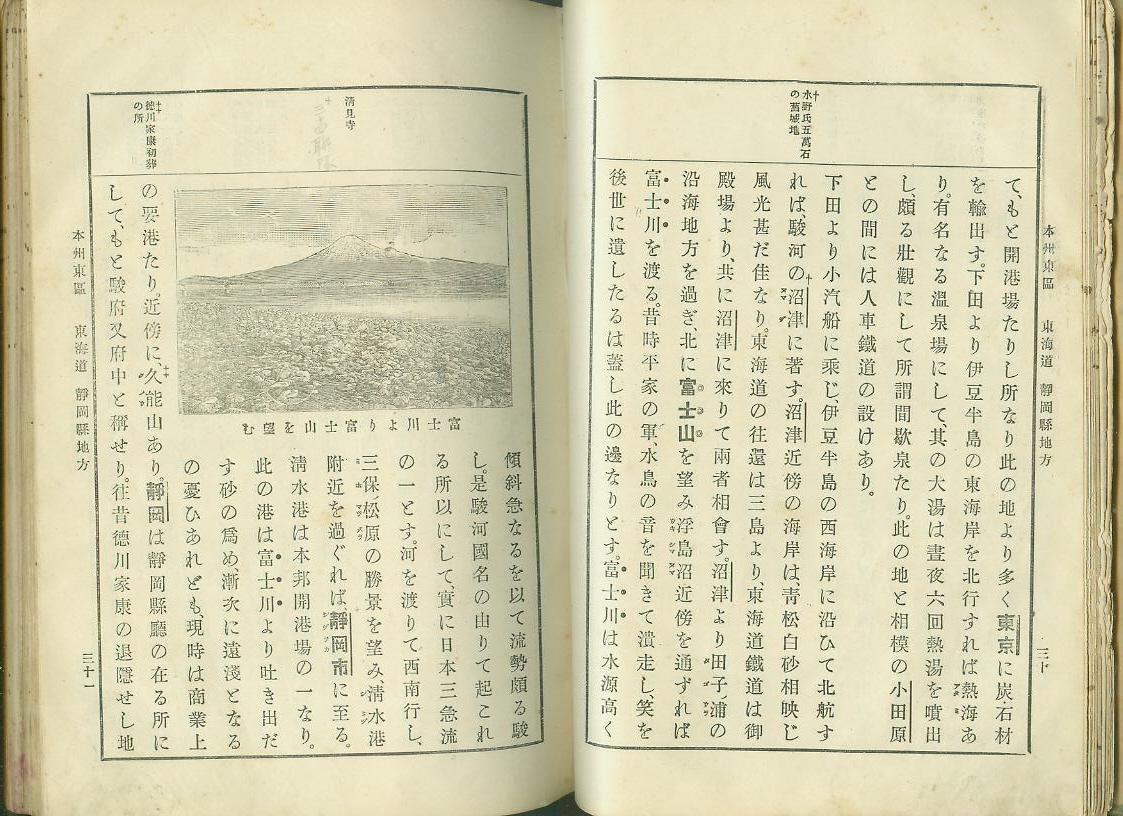 本州東區　東海道　靜岡縣地方
三十
十水野氏五萬石
の舊城地
て、もと開港場たりし所なり此の地より多く東京に炭・石材
を輸出す。下田より伊豆半島の東海岸を北行すれば熱海あ
り。有名なる溫泉場にして、其の大湯は晝夜六回熱湯を噴出
し、頗る壯觀にして所謂間歇泉たり。此の地と相模の小田原
との間には人車鐵道の設けあり。
下田より小汽船に乘じ、伊豆半島の西海岸に沿ひて北航す
れば、駿河の沼津に著す。沼津近傍の海岸は、靑松白砂相映じ
風光甚だ佳なり。東海道の往還は三島より、東海道鐵道は御
殿場より、共に沼津に來りて兩者相會す。沼津より田子ノ浦の
沿海地方を過ぎ、北に富士山を望み浮島沼近傍を通ずれば
富士川を渡る。昔時平家の軍、水鳥の音を聞きて潰走し、笑を
後世に遺したるは蓋し此の邊なりとす。富士川は水源高く
淸見寺
十徳川家康初葬
の所
富士川より富士山を望む
傾斜急なるを以て流勢頗る駿
し。是駿河國名の由りて起これ
る所以にして、實に日本三急流
の一とす。河を渡りて西南行し、
三保ノ松原の勝景を望み淸水港
附近を過ぐれば靜岡市に至る。
淸水港は本邦開港場の一なり。
此の港は富士川より吐き出だ
す砂の爲め、漸次に遠淺となる
の憂ひあれども現時は商業上
の要港たり。近傍に久能山あり。靜岡は靜岡縣廳の在る所に
して、もと駿府又府中と稱せり。往昔德川家康の退隱せし地
本州東區　東海道　靜岡縣地方
三十一